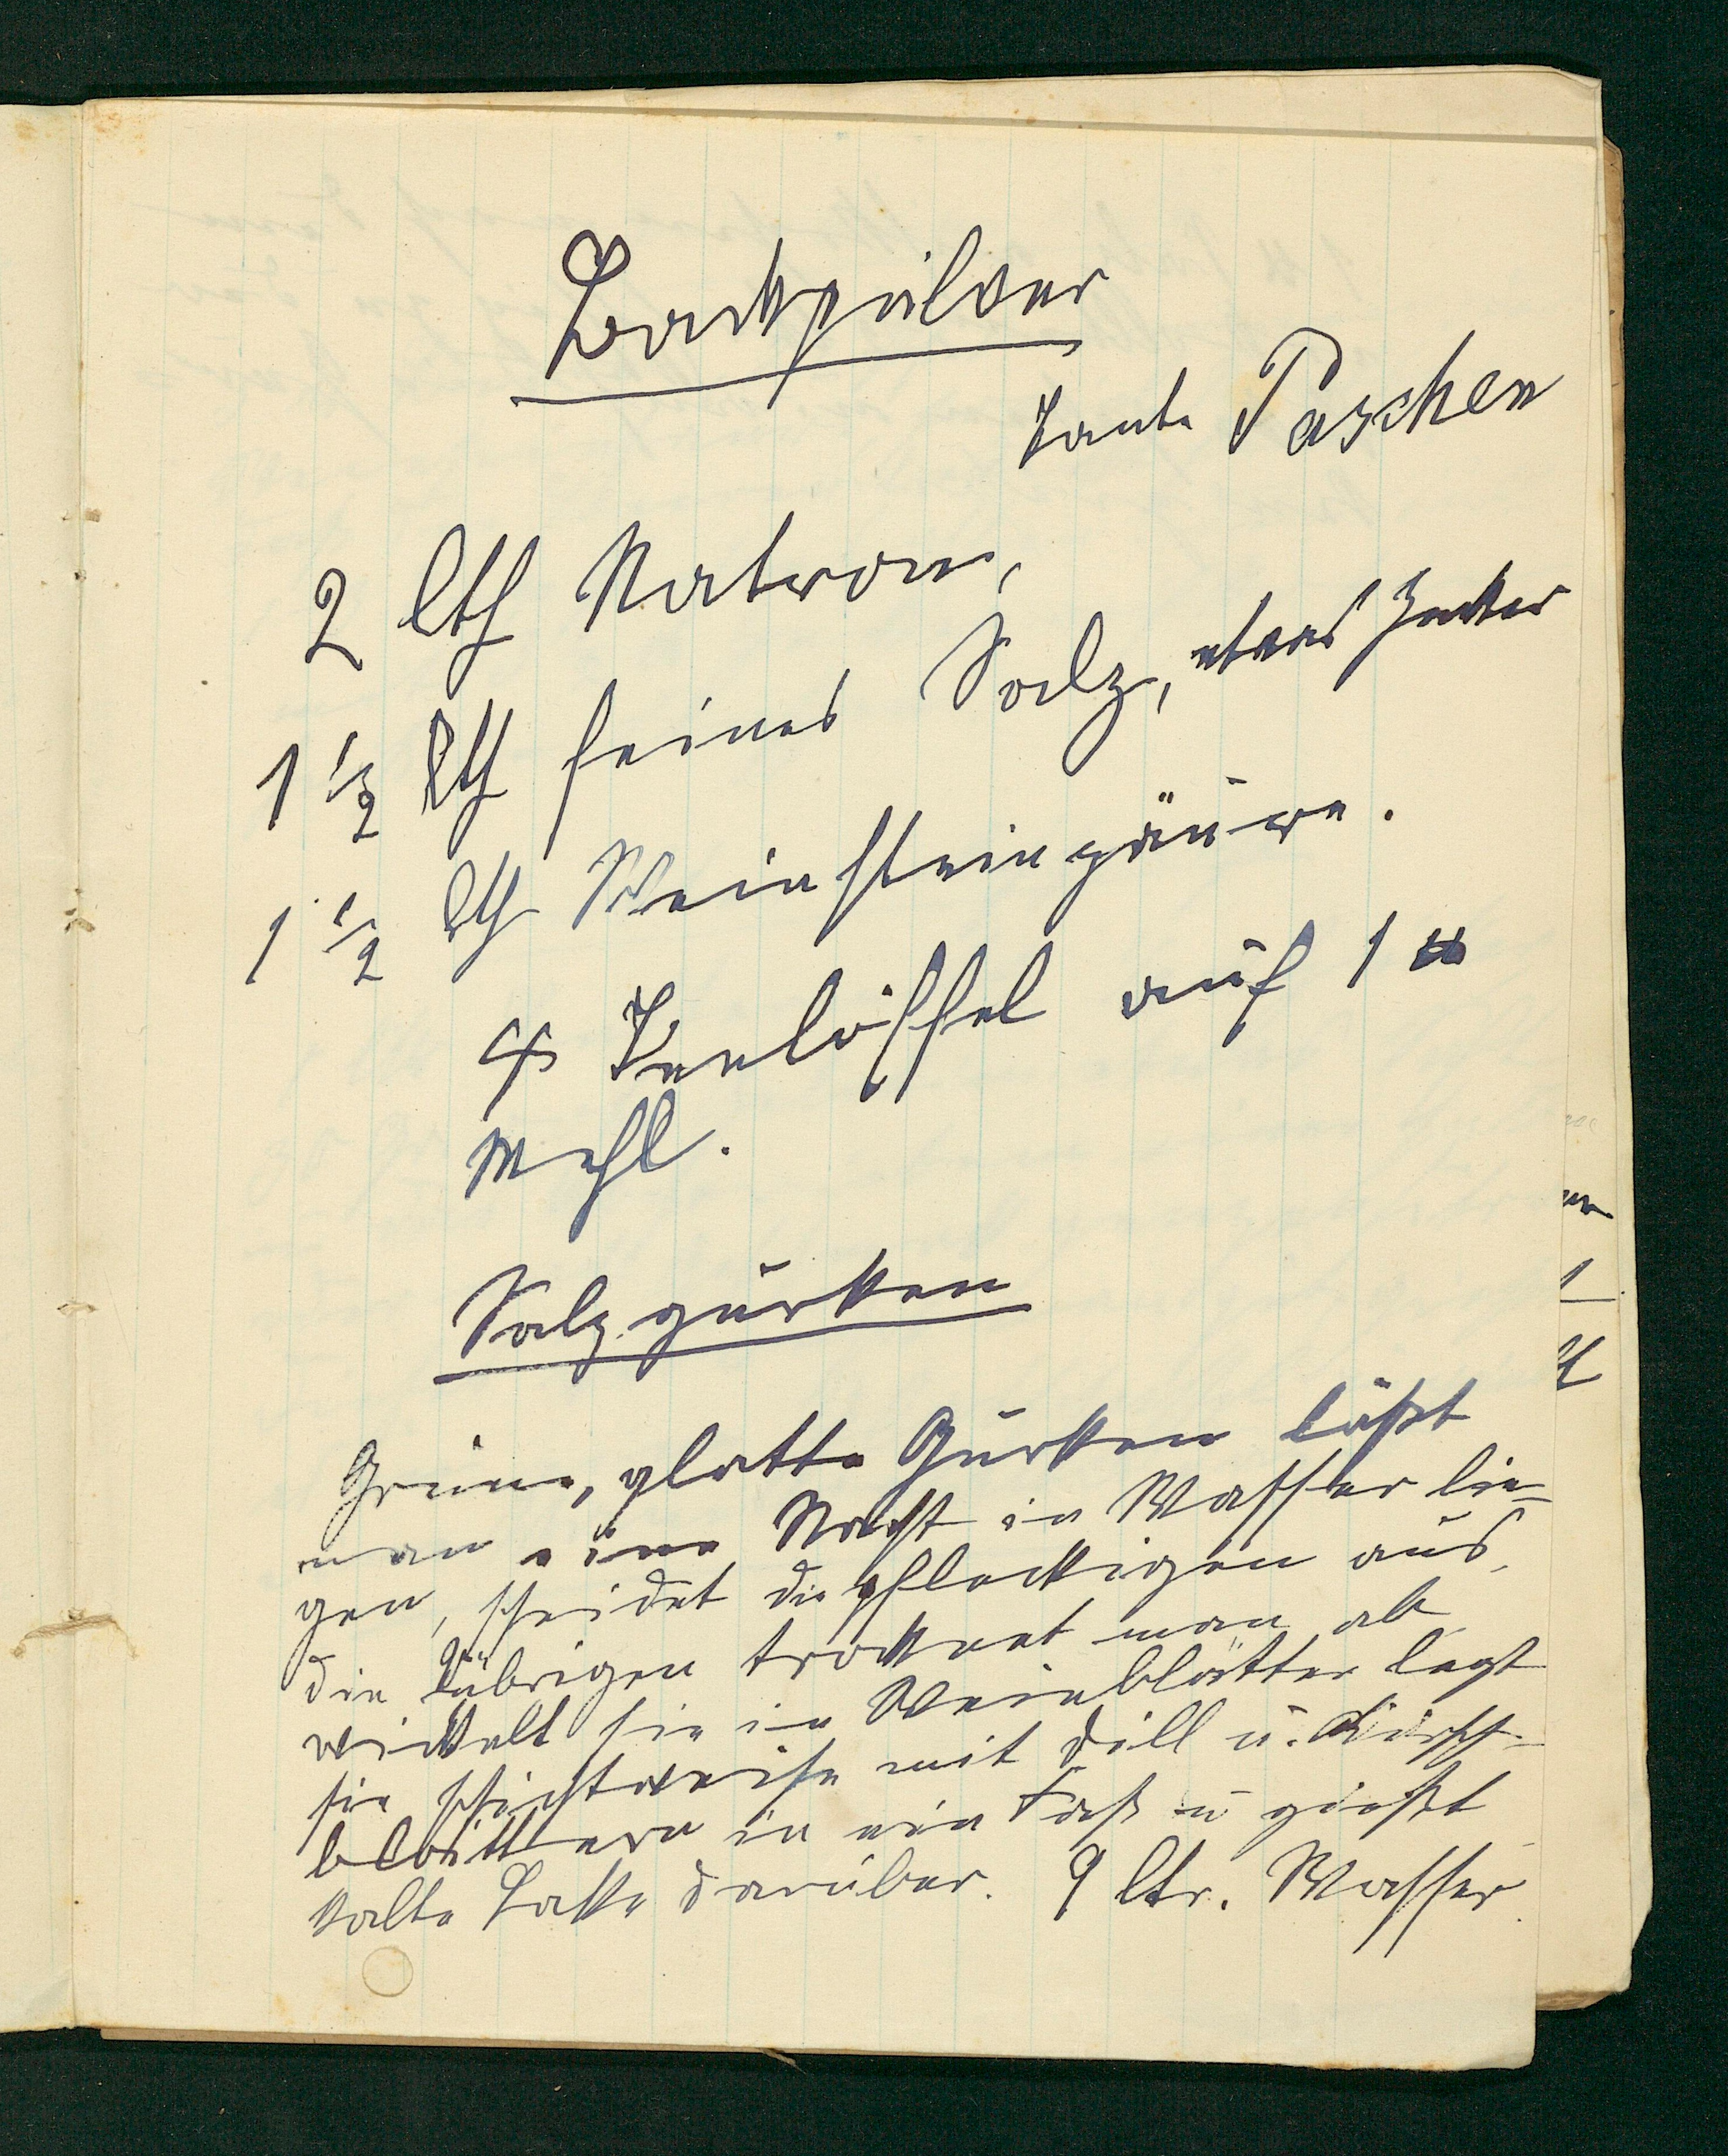 Backpulver
Tante Paschen
2 lth Natron,
1 1/2 lth feines Salz, etwas Zucker
1 1/2 lth Weinsteinsäure.
4 Teelöffel auf 1 ℔
Mehl.
Salzgurken
Grüne, glatte Gurken läßt
man eine Nacht in Wasser lie-
gen, scheidet die fleckigen aus,
die übrigen trocknet man ab
wickelt sie in Weinblätter legt
sie schichtweise mit Dill u. Kirsch-
blättern in ein Faß u gießt
kalte Lake darüber. 9 ltr. Wasser